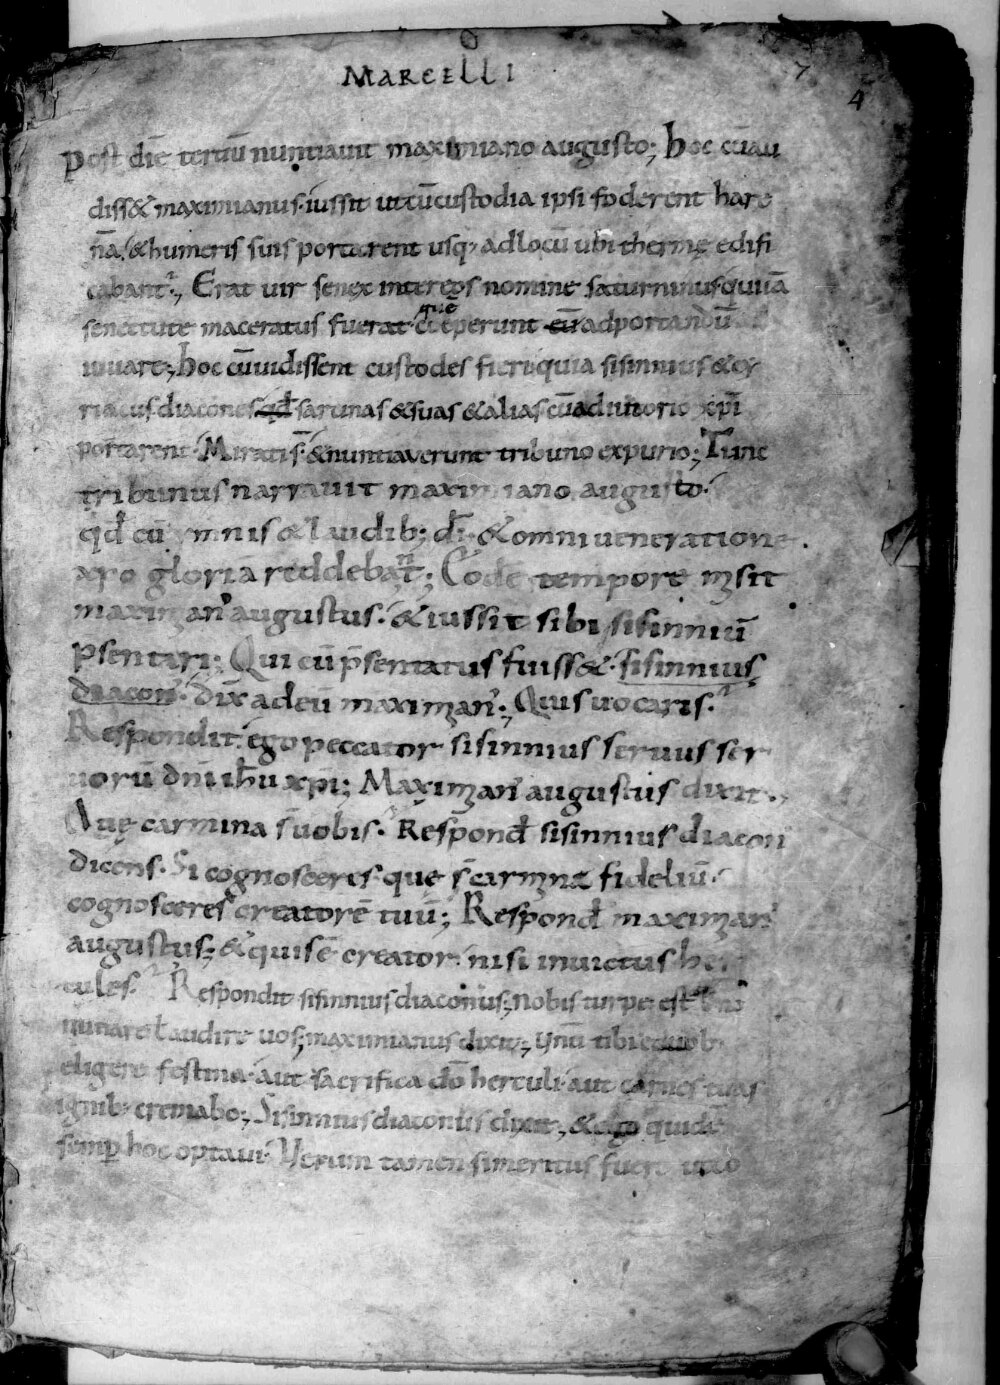 MARCELLI
7
4
post diē tertiū nuntiavit maximiano augusto; hoc cūau
diss& maximianus. iussit ut cū custodia ipsi foderent hare
nā. & humeris suis portarent usq; ad locū ubi thermę edifi
cabant.; Erat vir senex inter eos nomine saturninus quiiā
quē
senectute maceratus fuerat coeperunt eū adportandū
iuuare; hoc cū uidissent custodes fieri quia sisinnius & cy
riacus diacones qd sarcinas & suas & alias cū adiutorio xpi
portarent. Mirati s̄. & nuntiaverunt tribuno expurio; Tunc
tribunus narravit maximiano augusto.
qd cū ymnis & laudib; dī. & omni ueneratione
xpo gloriā reddebant; Eodē tempore misit
maximian' augustus. & iussit sibi sisinniū
p̄sentari; Qui cū p̄sentatus fuiss&. sisinnius
diacon'. dix ad eū maximian'; Quis uocaris.
Respondit. ego peccator sisinnius seruus ser
uorū dn̄i ihu xpi; Maximian' augustus dixit.,
Quę carmina s̄ uobis. Respond sisinnius diacon
dicens. Si cognosceres que s̄ carmina fideliū.
cognosceres creatorē tuū; Respond maximian'
augustus; & quis ē creator. nisi inuictus her
cules. Respondit sisinnius diaconus; nobis turpe est
nūnare ł audire uos; maximianus dixit; tibi e duob
eligere festina. aut sacrifica dō herculi. aut carnes tuas
ignib; cremabo; Sisinnius diaconus dixit; & ego quidē
semp hoc optavi. Verum tamen si meritus fuero